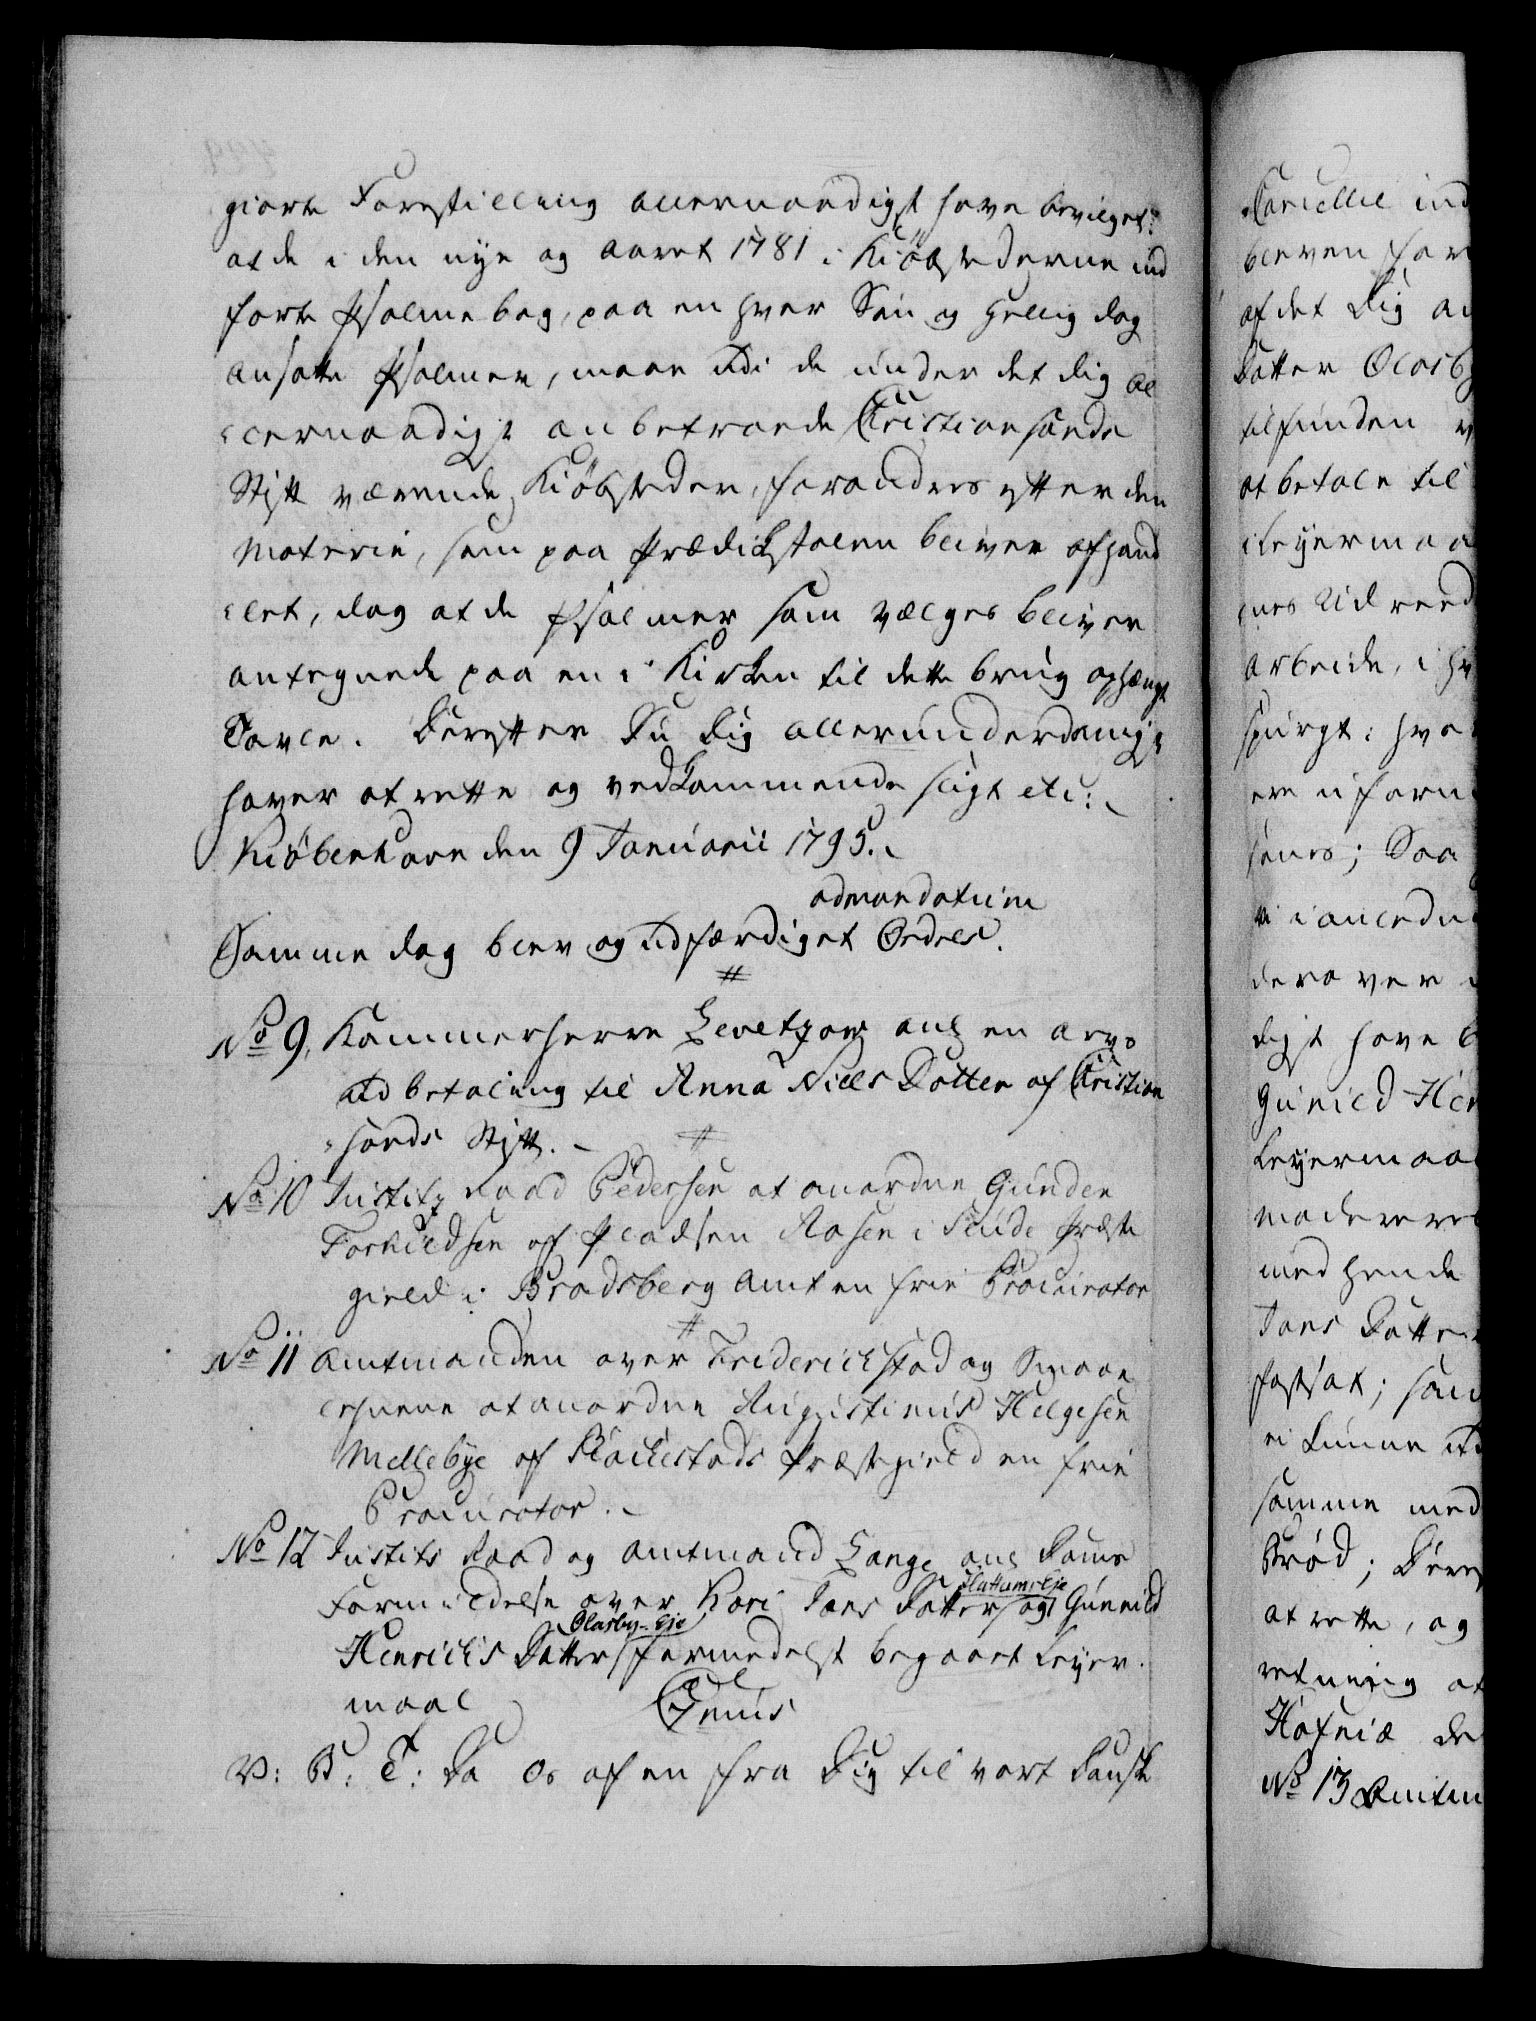 giorte Forestilling allernaadigst have bevilget:
at de i den nye og aaret 1781 i Kiøbstederne ind
førte Psalmebog, paa en hver Søn og Hellig dag
ansatte Psalmer, maae udi de under det dig al
lernaadigst anbetroede Christiansands
Stift værende Kiøbsteder, forandres efter den
Materie, som paa Prædikestolen bliver afhand
let, dog at de Psalmer som vælges bliver
antegnede paa en i Kirken til dette brug ophængt
Tavle. Derefter Du Dig allerunderdanigst
haver at rette og vedkommende sligt etc:
Kiøbenhavn den 9 Januarii 1795.
ad mandatum
Samme dag blev og udfærdiget Ordres.
#
No 9, Kammerherre Levetzow ang en arvs
udbetaling til Anna Niels Datter af Christian
sands Stift.
#
No 10 Justitz Raad Pedersen at anordne Gunder
Torkildsen af Pladsen Aasen i Slude Præste
gield i Bradsberg Amt en frie Procurator
#
No 11 Amtmanden over Friderichstad og Smaae
lehnene at anordne Augustinus Helgesen
Mellebye af Rackestads Præstegield en frie
Procurator.
No 12 Justits Raad og Amtmand Lange ang Doms
Formildelse over Kari Jans Datter Hattums Eje og Gunnild
Henrichs Datter Olasby-Eje formedelst begaaet Leyer
maal
Genus
V: G: T: Da Os af en fra Dig til vort Danske
Cancellie ind
bleven for
af det Dig an
Datter Olasby
tilfunden
at betale til
Leyermaa
arbeide, i
spurgt: hvo
Saa
i anledni
derover
digst have b
Gunild Hen
Leyermaa
med hende
Jans Datter
fastsat;
ei kunne
samme med
Brød; Deref
at rette, og
retning at
Hafniæ de
No 13 Amtm